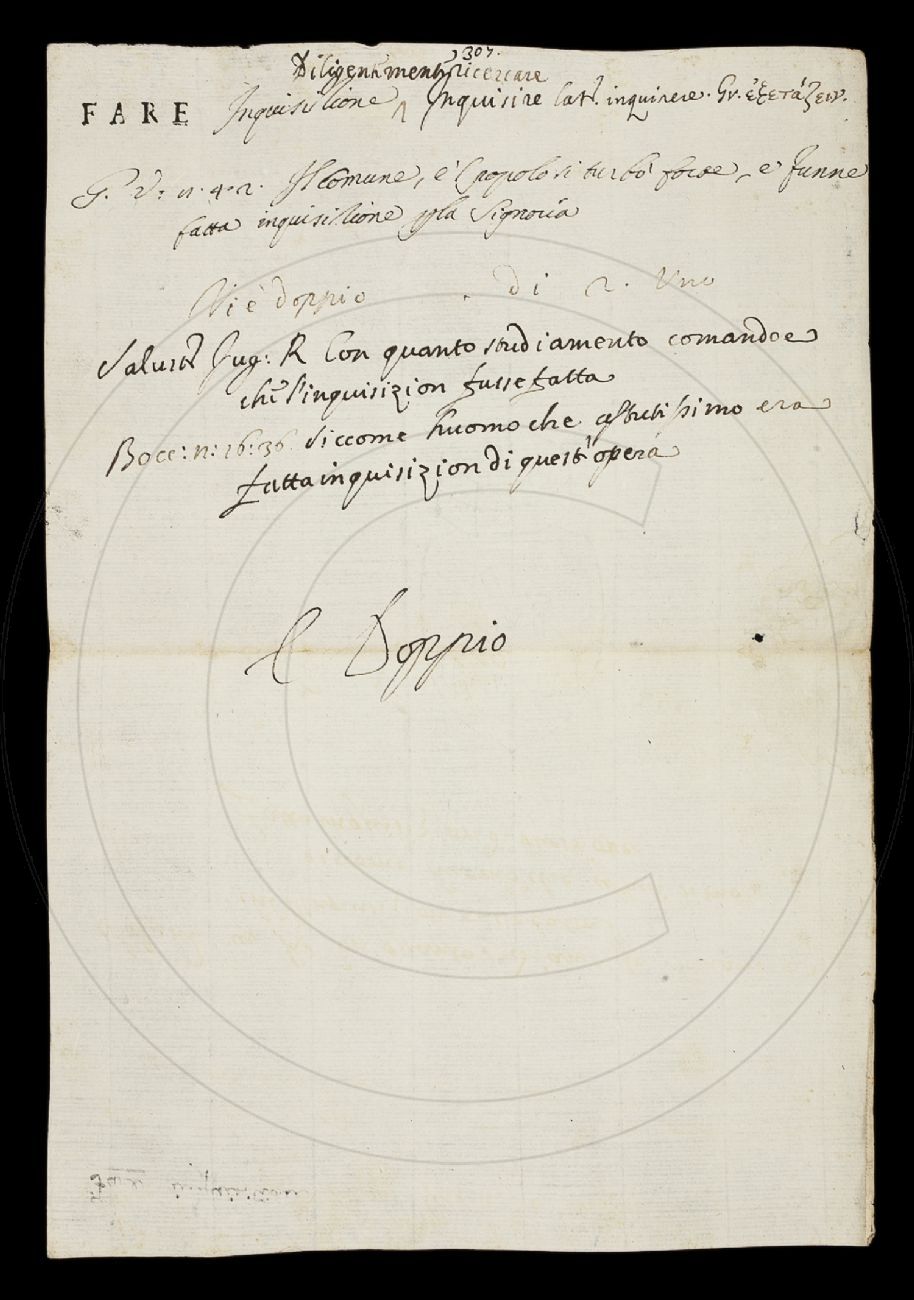 307.
Diligentemente ricercare
FARE Inquisizione ʌ Inquisire lat. inquirere. Gr. ἐξετάζειν.
G. V: 11. 4. 2. Il Comune, e 'l popolo si turbò forte, e funne
fatta inquisizione p la Signoria
Vi è doppio . di 2. Uno
Salust Jug: R Con quanto studiamento comandoe
che l'inquisizion fusse fatta
Bocc: n: 16: 36 Siccome huomo che astutissimo era
fatta inquisizion di quest'opera
È Doppio
Fare inquisizione